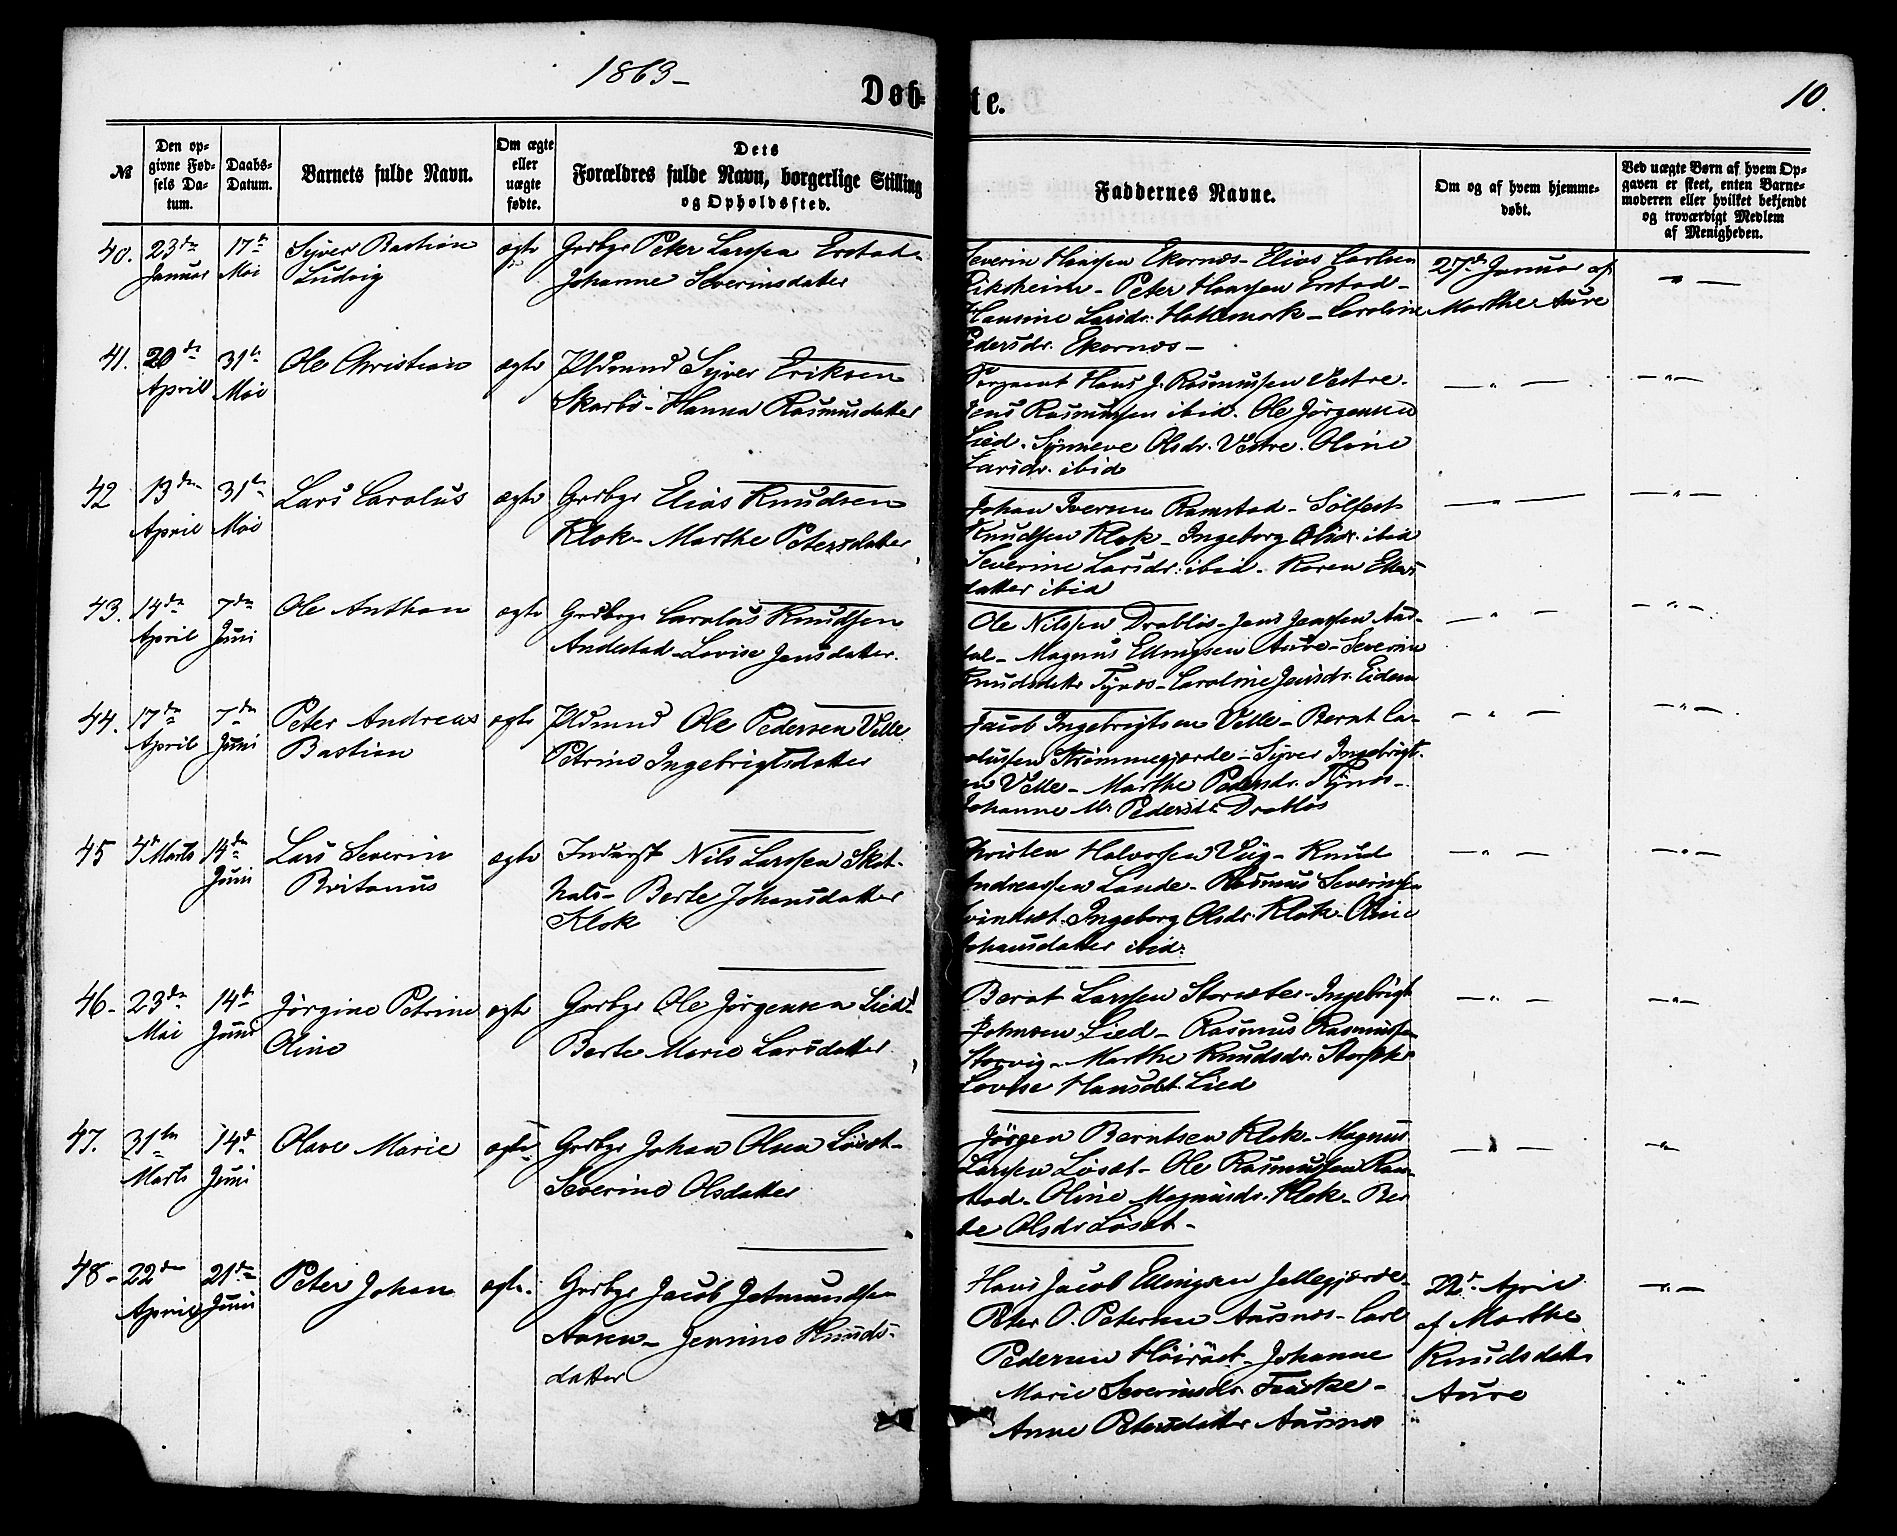 1863-
Døb-
te.
10.
№
Den op-
givne Fød-
sels Da-
tum.
Daabs-
Datum.
Barnets fulde Navn.
Om ægte
eller
uægte
fødte.
Dets
Forældres fulde Navn, borgerlige Stilling
og Opholdssted.
Faddernes Navne.
Om og af hvem hjemme-
døbt.
Ved uægte Børn af hvem Op-
gaven er skeet, enten Barne-
moderen eller hvilket bekjendt
og troværdigt Medlem
af Menigheden.
40. 23de Januar
17de Mai
Syver Bastian
Ludvig
ægte
Grdbgr Peter Larssen Erstad-
Johanne Severinsdatter
Severin Hanssen Ekornæs- Elias Carlsen
Riksheim- Peter Hanssen Erstad-
Hansine Larsdr. Hatlemark- Caroline
Pedersdr. Ekornæs-
27de Januar af
Marthe Aure
41. 20de April
31te Mai
Ole Christian
ægte
Pldmnd Syver Eriksen
Skarbö- Hanna Rasmusdatter
Hans J. Rasmussen Vestre.
Jens Rasmussen ibid. Ole Jörgensen
Lied. Synneve Olsdr. Vestre. Oline
Larsdr. ibid
42 13de April
31te Mai
Lars Carolus
ægte
Grdbgr Elias Knudsen
Klok- Marthe Petersdatter
Johan Iversen Ramstad- Sölfest
Knudssen Klok- Ingeborg Olsdr. ibid
Severine Larsdr. ibid- Karen Ellings
datter ibid
43. 14de April
7de Juni
Ole Anthon
ægte
Grdbgr Carolus Knudssen
Andestad- Lovise Jensdatter.
Ole Nilssen Drablös- Jens Jenssen Aus-
dal- Magnus Ellingsen Aure- Severine
Knudsdatter Tynæs- Caroline Jensdr. Eidem
44. 17de April
7de Juni
Peter Andreas
Bastian
ægte
Pldmnd Ole Pedersen Velle
Petrine Ingebrigtsdatter
Jacob Ingebrigtsen Velle- Bernt Ca-
rolussen Strömmegjerde- Syver Ingebrigt-
sen Velle- Marthe Pedersdr. Tynæs-
Johanne M. Pedersdr. Drablös
45 4de Marts
14de Juni
Lars Severin
Britanus
ægte
Inderst Nils Larssen Sket-
hals- Berte Johansdatter
Klok
Kristen Halvorsen Viig- Knud
Andreassen Lande- Rasmus Severinsen
Ingeborg Olsdr. Klok- Oline
Johansdatter ibid:
46- 23de Mai
14de Juni
Jörgine Petrine
Oline
ægte
Grdbgr Ole Jörgensen Lied-
Berte Marie Larsdatter
Bernt Larssen Storsæter- Ingebrigt
Johnsen Lied- Rasmus Rasmussen
Storvig- Marthe Knudsdr.
Lovise Hansdt. Lied
47. 31te Marts
14de Juni
Olave Marie
ægte
Grdbgr Johan Olsen Löset-
Severine Olsdatter
Jörgen Berntsen Klok- Magnus
Larssen Löset- Ole Rasmussen Ram-
stad- Oline Magnusdr. Klok- Ber
te Olsdr Löset-
48- 22de April
21de Juni
Peter Johan
ægte.
Grdbgr Jacob Jetmundsen
Aasen- Jensine Knuds-
datter
Hans Jacob Ellingsen Jellegjærde-
Peter O. Petersen Aursnes- Carl
Pedersen Höisæt- Johanne
Marie Severinsdr. Fauske-
Anne Petersdatter Aursnes
22de April
af Marthe
Knudsdatter
Aure